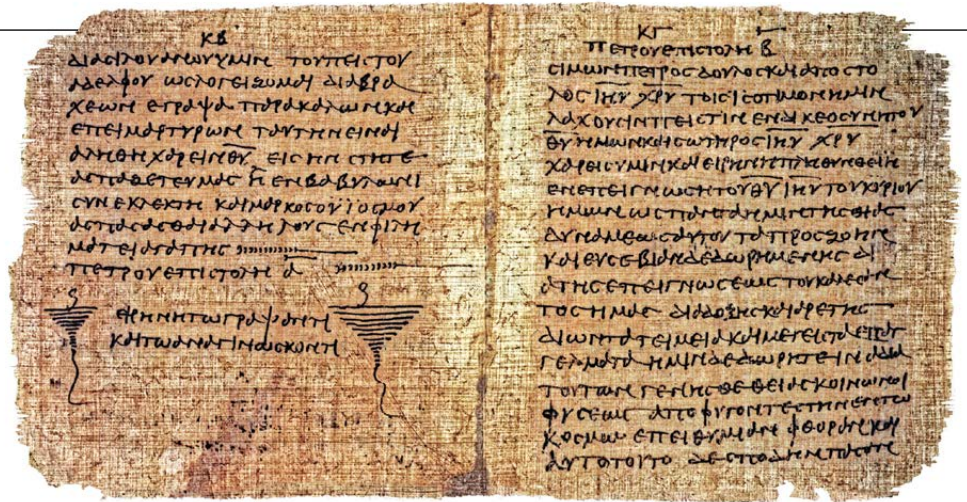 ΚΒ
ΔΙΑ CΙΛΟΥΑΝΟΥ ΥΜΙΝ ΤΟΥ ΠΕΙCΤΟΥ
ΑΔΕΛΦΟΥ ΩC ΛΟΓΕΙΖΟΜΑΙ ΔΙΑ ΒΡΑ
ΧΕΩΝ ΕΓΡΑΨΑ ΠΑΡΑΚΑΛΩΝ ΚΑΙ
ΕΠΕΙΜΑΡΤΥΡΩΝ ΤΑΥΤΗΝ ΕΙΝΑΙ
ΑΛΗΘΗ ΧΑΡΕΙΝ Θ̅Υ̅ ΕΙC ΗΝ CΤΗΤΕ
ΑCΠΑΖΕΤΕ ΥΜΑC Η ΕΝ ΒΑΒΥΛΩΝΙ
CΥΝΕΚΛΕΚΤΗ ΚΑΙ ΜΑΡΚΟC Ο ΥΙΟC ΜΟΥ
ΑCΠΑCΑCΘΑΙ ΑΛΛΗΛΟΥC ΕΝ ΦΙΛΗ
ΜΑΤΕΙ ΑΓΑΠΗC
ΠΕΤΡΟΥ ΕΠΙCΤΟΛΗ Α̅
ΕΙΡΗΝΗ ΤΩ ΓΡΑΨΑΝΤΙ
ΚΑΙ ΤΩ ΑΝΑΓΙΝΩCΚΟΝΤΙ
ΚΓ
ΠΕΤΡΟΥ ΕΠΙCΤΟΛΗ Β̅
CΙΜΩΝ ΠΕΤΡΟC ΔΟΥΛΟC ΚΑΙ ΑΠΟCΤΟ
ΛΟC Ι̅Η̅Υ̅ Χ̅Ρ̅Υ̅ ΤΟΙC ΙCΟΤΙΜΟΝ ΗΜΙΝ
ΛΑΧΟΥCΙΝ ΠΕΙCΤΙΝ ΕΝ ΔΙΚΕΟCΥΝΗ ΤΟΥ
Θ̅Υ̅ ΗΜΩΝ ΚΑΙ CΩΤΗΡΟC Ι̅Η̅Υ̅ Χ̅Ρ̅Υ̅
ΧΑΡΕΙC ΥΜΙΝ ΚΑΙ ΕΙΡΗΝΗ ΠΛΗΘΥΝΘΕΙΗ
ΕΝ ΕΠΕΙΓΝΩCΗ ΤΟΥ Θ̅Υ̅ Ι̅Η̅Υ̅ ΤΟΥ ΚΥΡΙΟΥ
ΗΜΩΝ ΩC ΠΑΝΤΑ ΗΜΙΝ ΤΗC ΘΙΑC
ΔΥΝΑΜΕΩC ΑΥΤΟΥ ΤΑ ΠΡΟC ΖΟΗΝ
ΚΑΙ ΕΥCΕΒΙΑΝ ΔΕΔΩΡΗΜΕΝΗC ΔΙ
Α ΤΗC ΕΠΕΙΓΝΩCΕΩC ΤΟΥ ΚΑΛΕCΑΝ
ΤΟC ΗΜΑC ΔΙΑ ΔΟΞΗC ΚΑΙ ΑΡΕΤΗC
ΔΙ ΩΝ ΤΑ ΤΕΙΜΕΙΑ ΚΑΙ ΜΕΓΕΙCΤΑ ΕΠΑΓ
ΓΕΛΜΑΤΑ ΗΜΙΝ ΔΕΔΩΡΗΤΕ ΙΝΑ ΔΙΑ
ΤΟΥΤΩΝ ΓΕΝΗCΘΕ ΘΕΙΑC ΚΟΙΝΩΝΟΙ
ΦΥCΕΩC ΑΠΟΦΥΓΟΝΤΕC ΤΗΝ ΕΝ ΤΩ
ΚΟCΜΩ ΕΠΕΙΘΥΜΙΑΝ ΦΘΟΡΑΝ ΚΑΙ
ΑΥΤΟ ΤΟΥΤΟ ΔΕ CΠΟΔΗΝ ΠΑCΑΝ